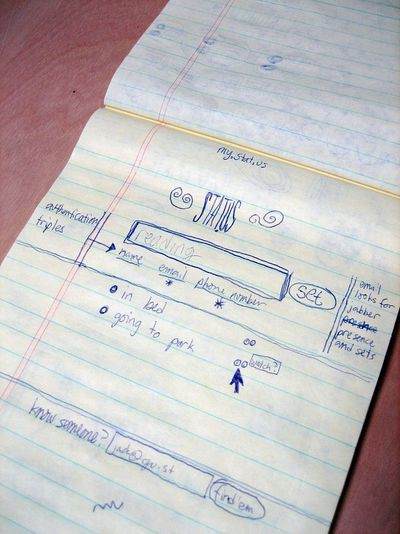 my.stat.us
STATUS
authentication
triples
reading
name email phone number
set
email
looks for
jabber
presence
presence
and sets
in bed
going to park
watch?
know someone?
jack@gu.st
find'em